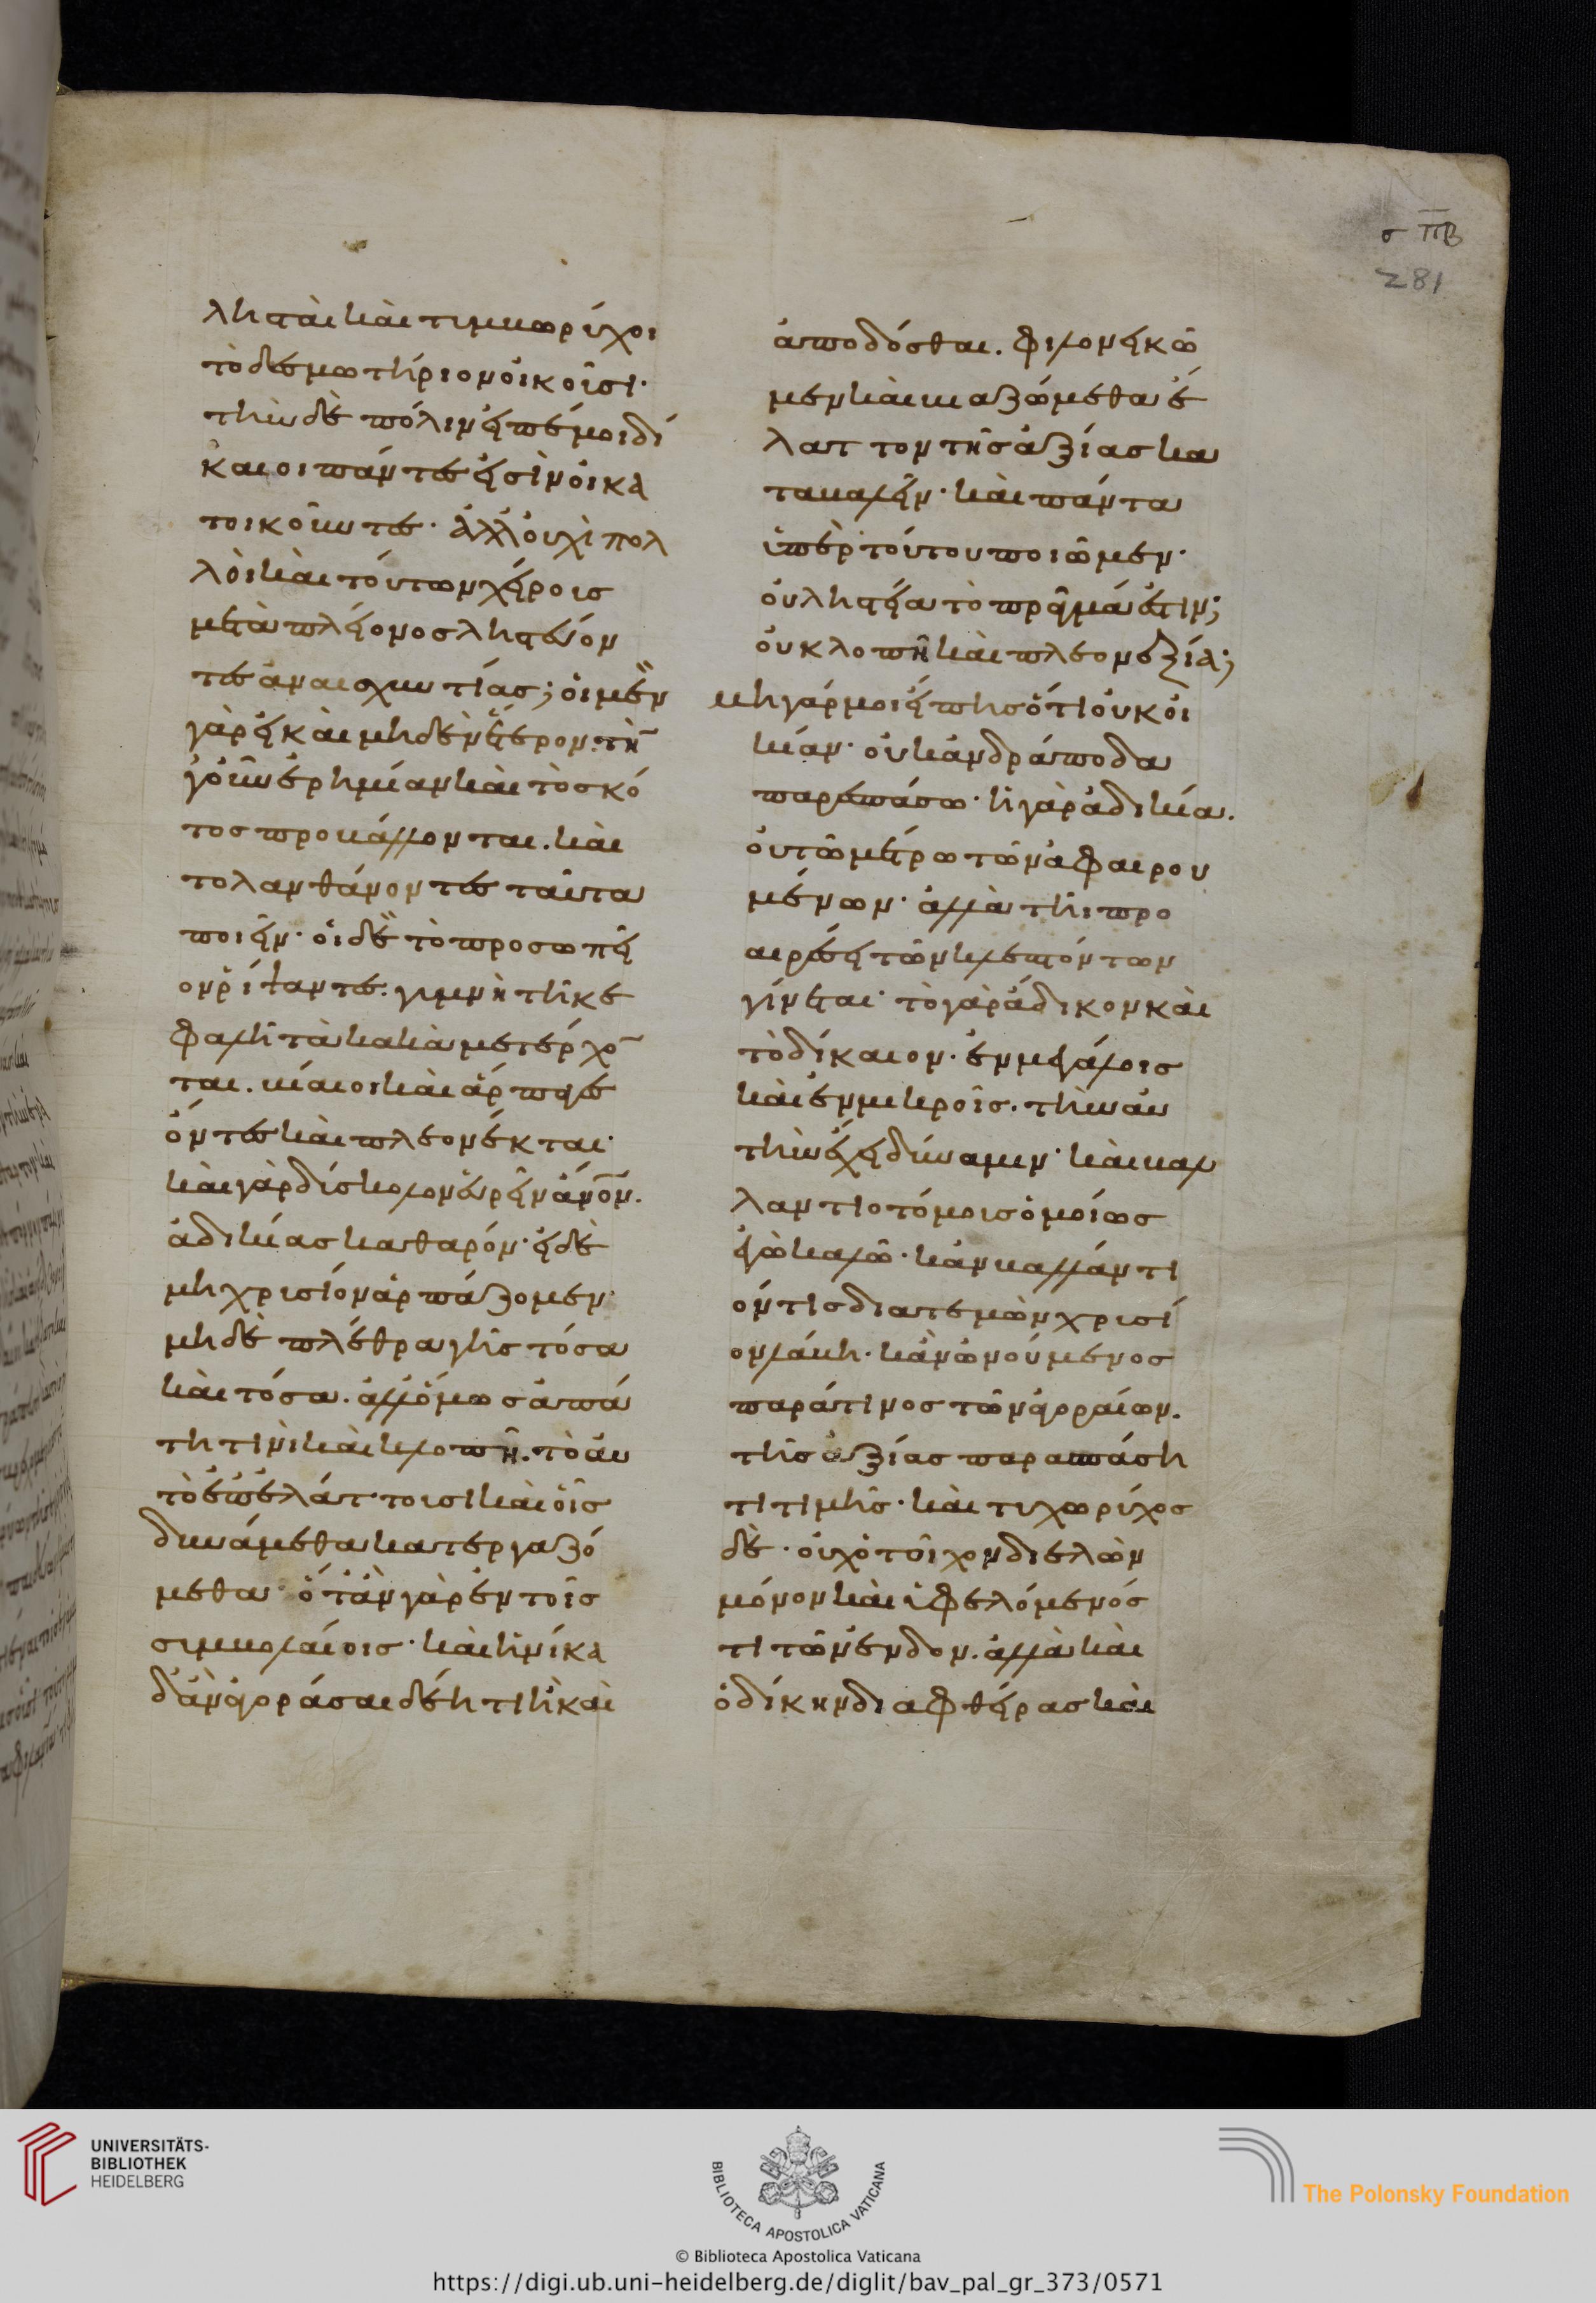 σπβ
281
λησταὶ καὶ τυμβωρύχοι
τὸ δεσμωτήριον οἰκοῦσι·
τὴν δὲ πόλιν εἰπέ μοι δί
καιοι πάντες εἰσὶν οἱ κα
τοικοῦντες· ἀλλ' οὐχὶ πολ
λοὶ καὶ τούτων χείρους
μετὰ πλείονος ληστεύον
τες ἀναισχυντίας; οἱ μὲν
γὰρ εἰ καὶ μηδὲν ἕτερον. τὴν
γοῦν ἐρημίαν καὶ τὸ σκό
τος προβάλλονται. καὶ
τὸ λανθάνοντες ταῦτα
ποιεῖν· οἱ δὲ τὸ προσωπεῖ
ον ῥίψαντες. γυμνῇ τῇ κε
φαλῇ τὰ κακὰ μετέρχον
ται. βίαιοι καὶ ἅρπαγες
ὄντες καὶ πλεονέκται·
καὶ γὰρ δύσκολον εὑρεῖν ἄνον.
ἀδικίας καθαρόν· εἰ δὲ
μὴ χρυσίον ἁρπάζομεν·
μηδὲ πλέθρα γῆς τόσα
καὶ τόσα. ἀλλ' ὅμως ἀπά
τη τινὶ καὶ κλοπῇ. τὸ αὐ
τὸ ἐπ' ἐλάττοσι καὶ οἷς
δυνάμεθα κατεργαζό
μεθα· ὅταν γὰρ ἐν τοῖς
συμβολαίοις· καὶ ἡνίκα
δ' ἂν ἀγοράσαι δέη τι ἢ καὶ
ἀποδόσθαι. φιλονεικῶ
μεν καὶ βιαζώμεθα ἔ
λαττον τῆς ἀξίας κα
ταβαλεῖν· καὶ πάντα
ὑπὲρ τούτου ποιῶμεν·
οὐ ληστεία τὸ πρᾶγμά ἐστιν;
οὐ κλοπὴ καὶ πλεονεξία;
μὴ γάρ μοι εἴπης ὅτι οὐκ οἰ
κίαν· οὐκ ἀνδράποδα
παρέσπασω· ἡ γὰρ ἀδικία.
οὐ τῶ μέτρω τῶν ἀφαιρου
μένων· ἀλλὰ τῆ προ
αιρέσει τῶν κλεπτόντων
γίνεται· τὸ γὰρ ἄδικον καὶ
τὸ δίκαιον· ἐν μεγάλοις
καὶ ἐν μικροῖς. τὴν αὐ
τὴν ἔχει δύναμιν· καὶ βαλ
λαντιοτόμους ὁμοίως
ἐγὼ καλῶ· κἂν βαλλάντι
όν τις διατεμὼν χρυσί
ον λάβη· κἂν ὠνούμενος
παρά τινος τῶν ἀγοραίων.
τῆς ἀξίας παρασπάση
τι τιμῆς· καὶ τυχωρύχος
δὲ· οὐχ ὁ τοῖχον διελὼν
μόνον καὶ ὑφελόμενός
τι τῶν ἔνδον. ἀλλὰ καὶ
ὁ δίκην διαφθείρας καὶ
UNIVERSITÄTS-
BIBLIOTHEK
HEIDELBERG
BIBLIOTECA APOSTOLICA VATICANA
The Polonsky Foundation
© Biblioteca Apostolica Vaticana
https://digi.ub.uni-heidelberg.de/diglit/bav_pal_gr_373/0571